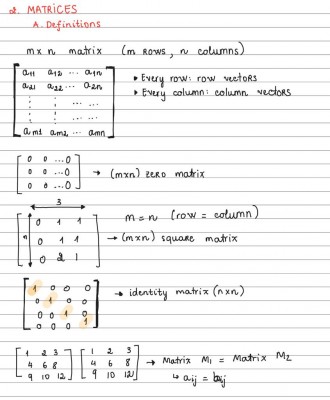 2. MATRICES
A. Definitions
m x n matrix (m rows, n columns)
a11 a12 ... a1n
a21 a22 ... a2n
am1 am2 ... amn
▸ Every row: row vectors
▸ Every column: column vectors
0 0 ...0
0 0 ...0
0 0 ...0
→ (mxn) zero matrix
3
0 1 1
0 1 1
0 2 1
m = n (row = column)
→ (mxn) square matrix
1 0 0 0
0 1 0 0
0 0 1 0
0 0 0 1
→ identity matrix (nxn)
1 2 3
4 6 8
9 10 12
1 2 3
4 6 8
9 10 12
→ Matrix M1 = Matrix M2
↳ aij = bij